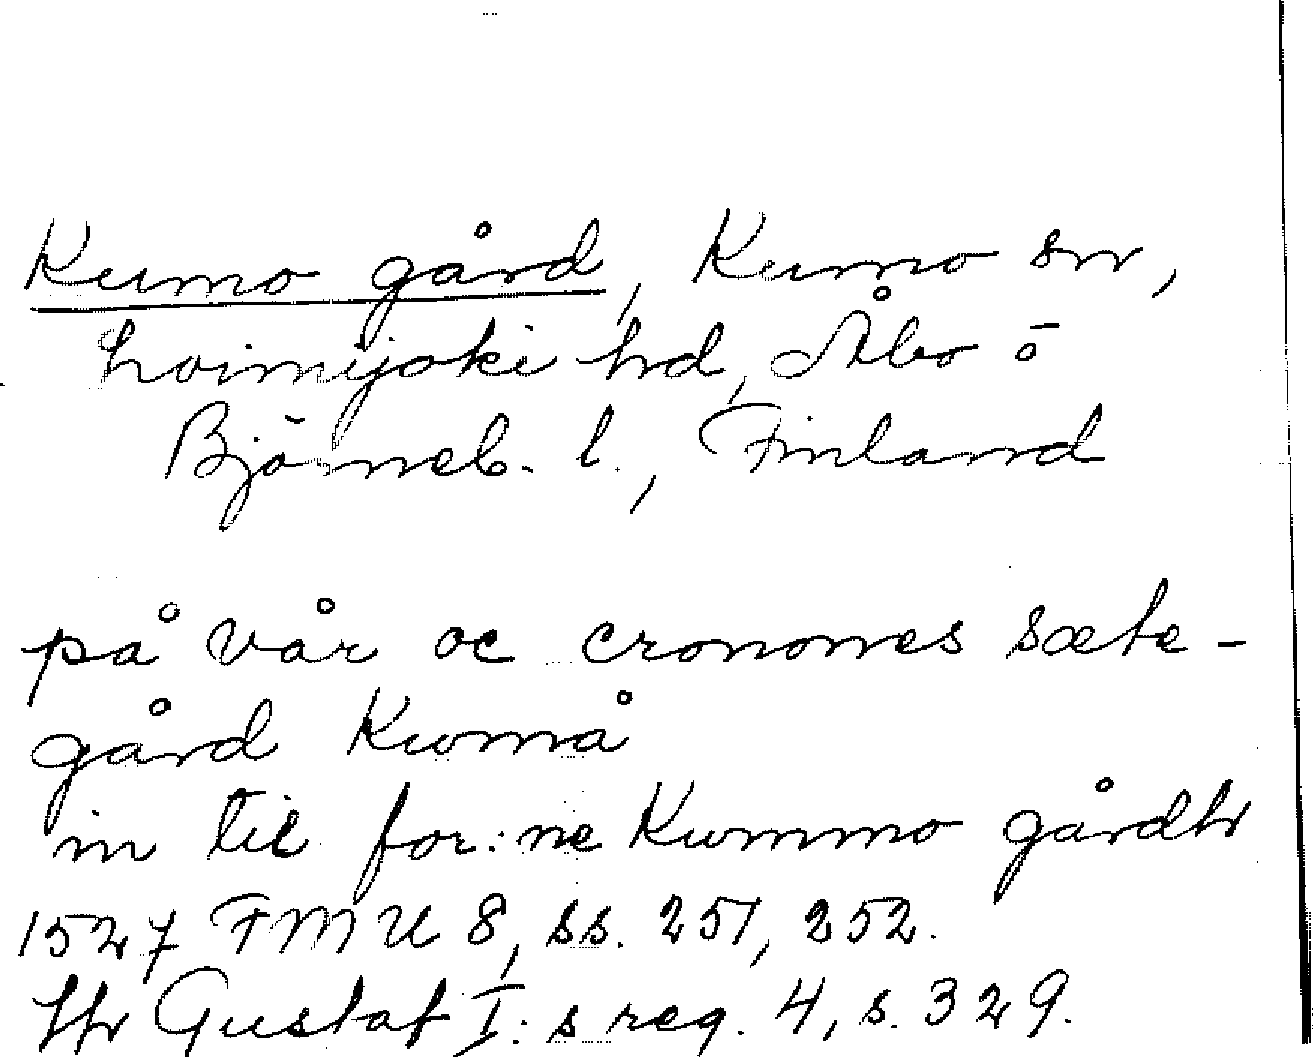 Kumo gård, Kumo sn,
Loimijoki hd, Åbo o
Björneb. l., Finland
på vår oc cronones sæte-
gård Kwmå
in til for:ne Kwmmo gårdh
1527 FMU 8, ss. 251, 252.
Gustaf I:s reg. 4, s. 329.